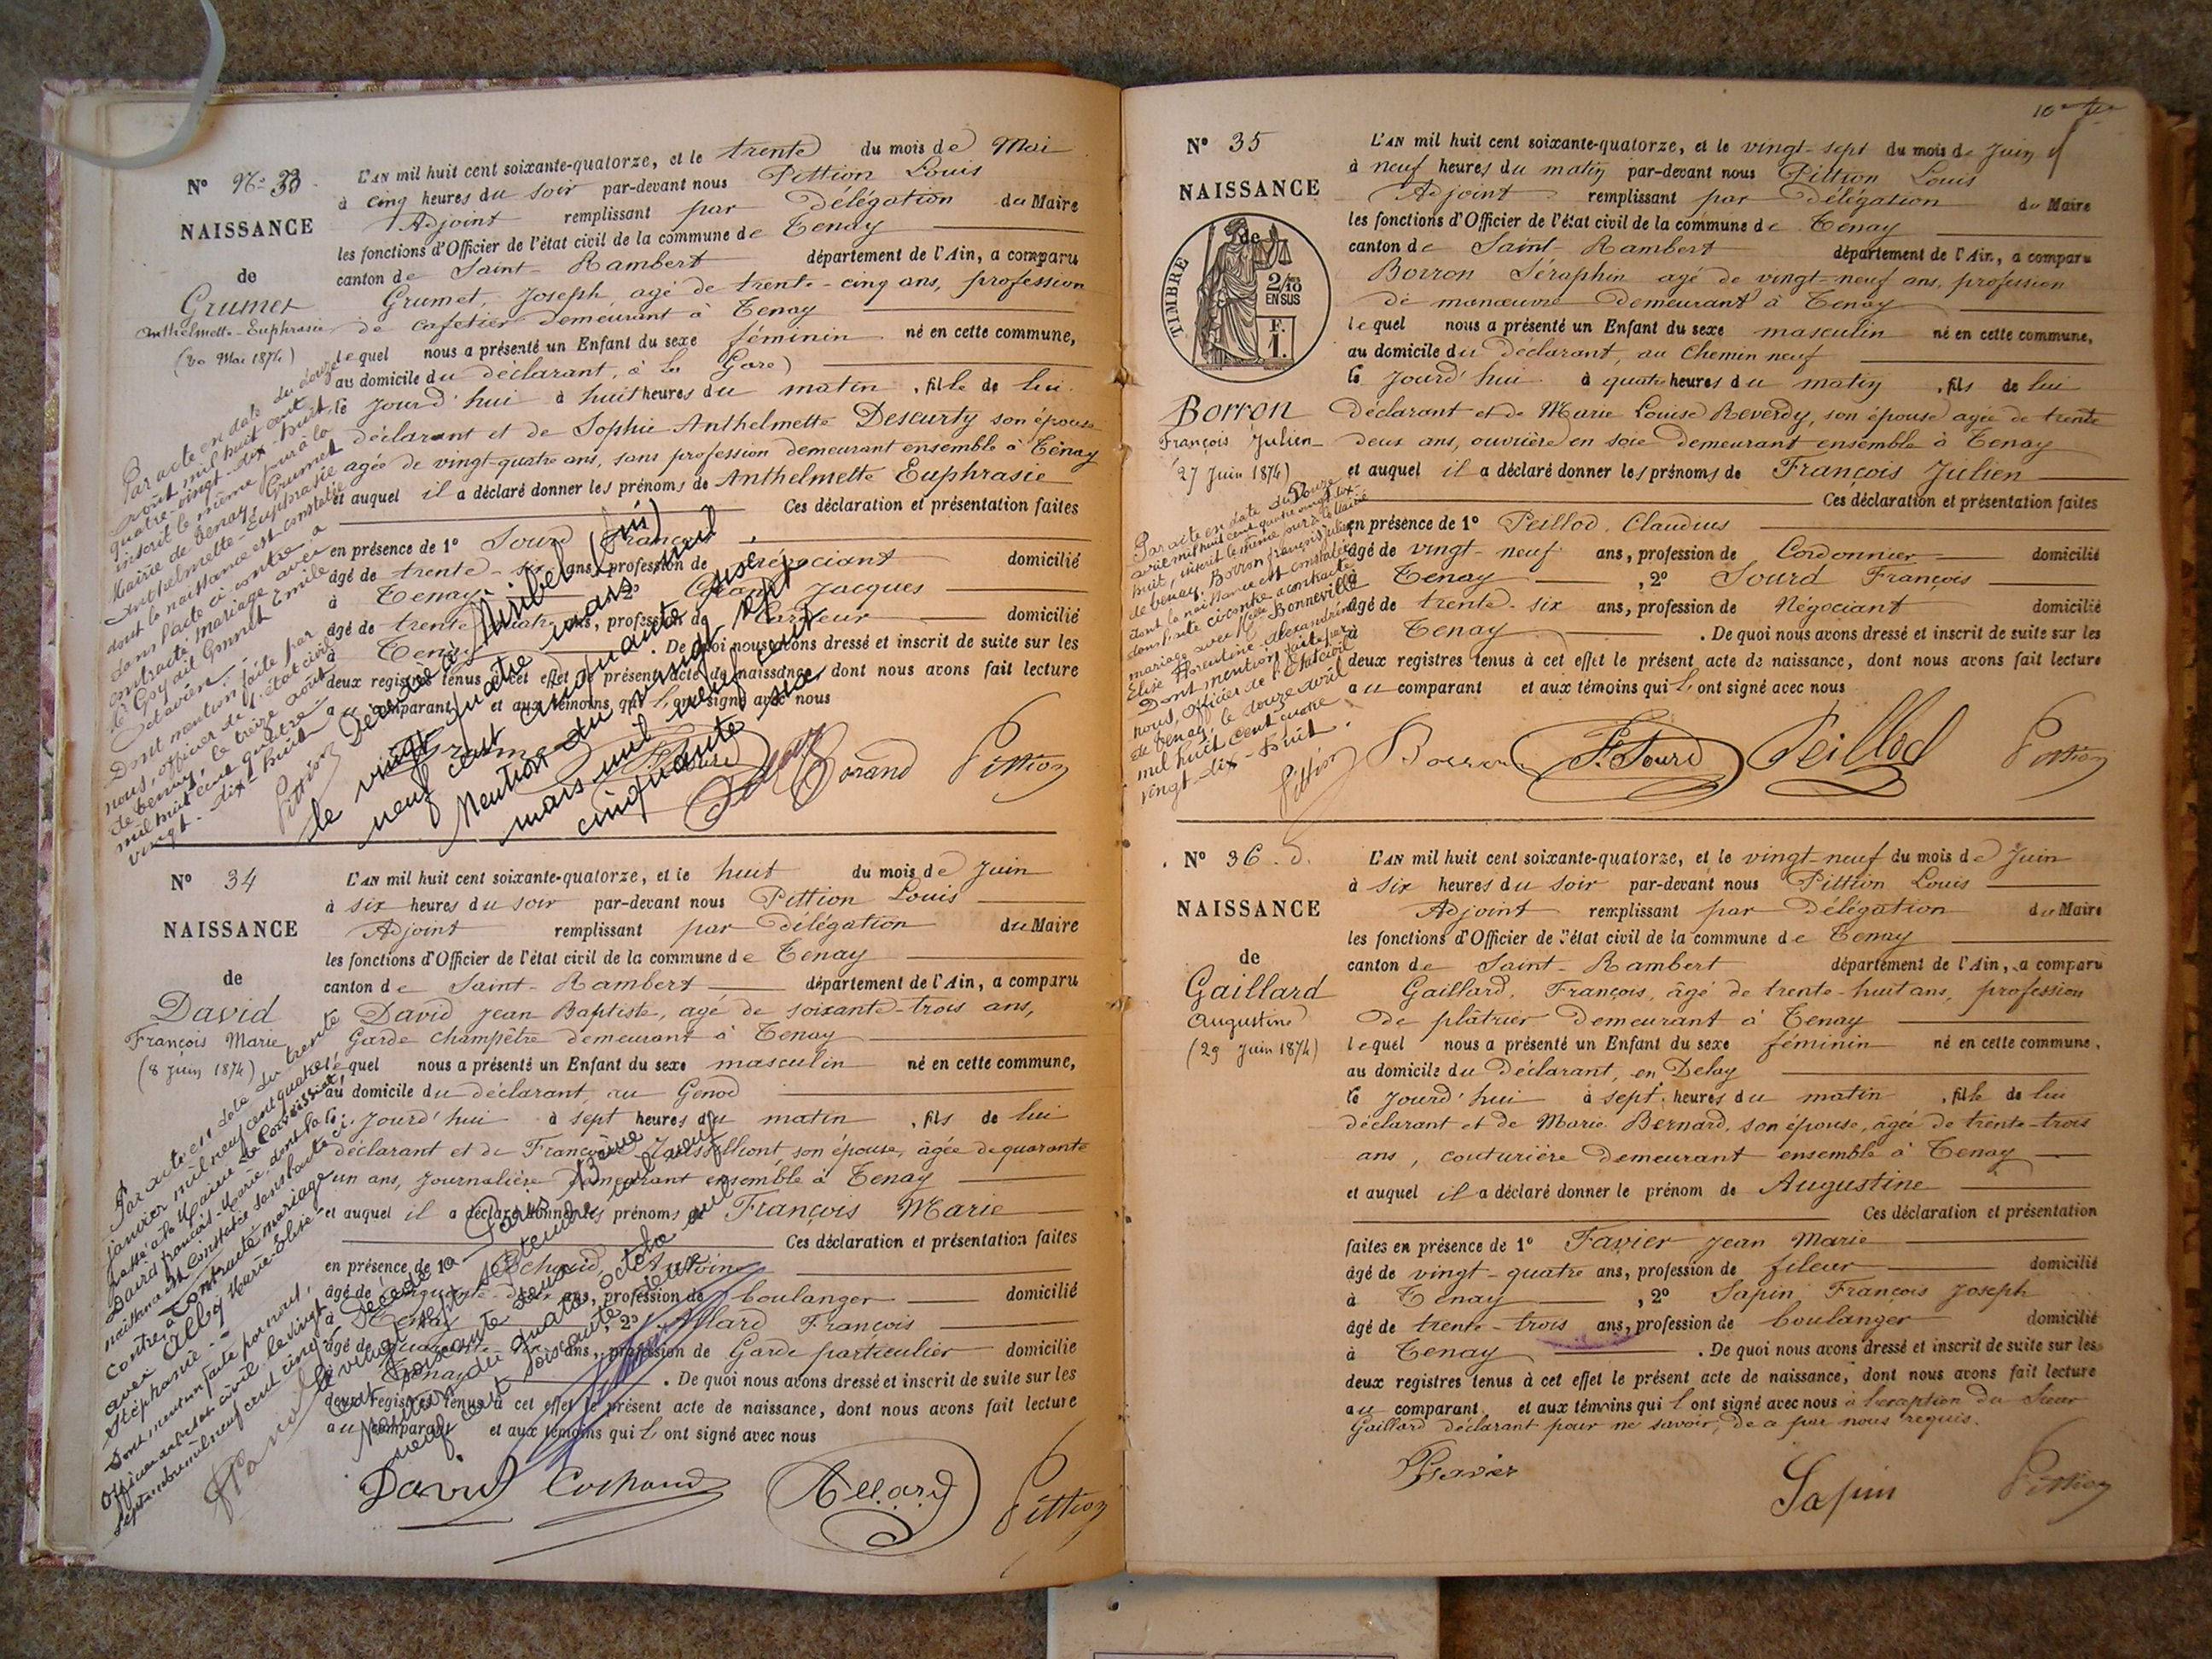 Nº 33
NAISSANCE
de
Grumet
Anthelmette-Euphrasie
(30 Mai 1874)
L'AN mil huit cent soixante-quatorze, et le trente du mois de Mai
à cinq heures du soir par-devant nous Pittion Louis
Adjoint remplissant par Délégation du Maire
les fonctions d'Officier de l'état civil de la commune de Tenay
canton de Saint-Rambert département de l'Ain, a comparu
Grumet, Joseph, agé de trente-cinq ans, profession
de cafetier demeurant à Tenay
lequel nous a présenté un Enfant du sexe féminin né en cette commune,
au domicile du déclarant, à la Gare
le jourd'hui à huit heures du matin, fille de lui
déclarant et de Sophie Anthelmette Descurty son épouse
agée de vingt-quatre ans, sans profession demeurant ensemble à Tenay
et auquel il a déclaré donner les prénoms de Anthelmette Euphrasie
Ces déclaration et présentation faites
en présence de 1º Sourd François
âgé de trente-six ans, profession de négociant domicilié
à Tenay, 2º Jacques
âgé de trente quatre ans, profession de domicilié
à Tenay. De quoi nous avons dressé et inscrit de suite sur les
deux registres tenus à cet effet le présent acte de naissance, dont nous avons fait lecture
au comparant et aux témoins qui l'ont signé avec nous
Par acte en date du douze
août mil huit cent
quatre-vingt-dix-huit,
inscrit le même jour à la
Mairie de Tenay, Grumet
Anthelmette-Euphrasie
dont la naissance est constatée
dans l'acte ci contre, a
contracté mariage avec
Emile
Octavien.
Dont mention faite par
nous, officier de l'état civil
de Tenay, le treize août
mil huit cent quatre-
vingt-dix-huit
Pittion
Décédée à Miribel (Ain)
le vingt quatre mars mil
neuf cent cinquante six
Mention du vingt sept
mars mil neuf cent
cinquante six
Grumet F. Sourd Corand Pittion
Nº 34
NAISSANCE
de
David
François Marie
(8 juin 1874)
L'AN mil huit cent soixante-quatorze, et le huit du mois de Juin
à six heures du soir par-devant nous Pittion Louis
Adjoint remplissant par délégation du Maire
les fonctions d'Officier de l'état civil de la commune de Tenay
canton de Saint-Rambert département de l'Ain, a comparu
David Jean Baptiste, agé de soixante-trois ans,
Garde champêtre demeurant à Tenay
lequel nous a présenté un Enfant du sexe masculin né en cette commune,
au domicile du déclarant, au Genod
le jourd'hui à sept heures du matin, fils de lui
déclarant et de Françoise, son épouse, âgée de quarante
un ans, journalière demeurant ensemble à Tenay
et auquel il a déclaré donner les prénoms de François Marie
Ces déclaration et présentation faites
en présence de 1º Antoine
âgé de ans, profession de boulanger domicilié
à Tenay, 2º Allard François
âgé de quarante ans, profession de Garde particulier domicilié
à Tenay. De quoi nous avons dressé et inscrit de suite sur les
deux registres tenus à cet effet le présent acte de naissance, dont nous avons fait lecture
au comparant et aux témoins qui l'ont signé avec nous
Par acte en date du trente
janvier mil neuf cent quatre
passé à la Mairie de
David François-Marie, dont la
naissance est constatée dans l'acte ci-
contre, a contracté mariage
avec Alby Marie-Elise-
Stéphanie.
Dont mention faite par nous,
Officier de l'état civil le vingt
septembre mil neuf cent cinq
Décédé à Paris 13ème
le vingt sept septembre mil neuf
cent soixante deux
Mention du quatre octobre mil
neuf cent soixante deux
David Allard Pittion
Nº 35
NAISSANCE
de
TIMBRE
2/10 EN SUS
F. 1.
Borron
François Julien
27 Juin 1874)
L'AN mil huit cent soixante-quatorze, et le vingt-sept du mois de Juin
à neuf heures du matin par-devant nous Pittion Louis
Adjoint remplissant par délégation du Maire
les fonctions d'Officier de l'état civil de la commune de Tenay
canton de Saint-Rambert département de l'Ain, a comparu
Borron Séraphin agé de vingt-neuf ans, profession
de manœuvre demeurant à Tenay
lequel nous a présenté un Enfant du sexe masculin né en cette commune,
au domicile du déclarant, au Chemin neuf
le jourd'hui à quatre heures du matin, fils de lui
déclarant et de Marie Louise Reverdy, son épouse agée de trente
deux ans, ouvrière en soie demeurant ensemble à Tenay
et auquel il a déclaré donner les prénoms de François Julien
Ces déclaration et présentation faites
en présence de 1º Peillod, Claudius
âgé de vingt-neuf ans, profession de Cordonnier domicilié
à Tenay, 2º Sourd François
âgé de trente-six ans, profession de Négociant domicilié
à Tenay. De quoi nous avons dressé et inscrit de suite sur les
deux registres tenus à cet effet le présent acte de naissance, dont nous avons fait lecture
au comparant et aux témoins qui l'ont signé avec nous
Par acte en date du Douze
avril mil huit cent quatre vingt dix-
huit, inscrit le même jour à la Mairie
de Tenay, Borron François Julien
dont la naissance est constatée
dans l'acte ci contre a contracté
mariage avec Melle Bonneville
Elise Florentine Alexandrine
Dont mention faite par
nous, Officier de l'Etat civil
de Tenay, le douze avril
mil huit cent quatre
vingt-dix-huit.
Pittion
Borron F. Sourd Peillod Pittion
Nº 36
NAISSANCE
de
Gaillard
Augustine
(29 Juin 1874)
L'AN mil huit cent soixante-quatorze, et le vingt-neuf du mois de Juin
à six heures du soir par-devant nous Pittion Louis
Adjoint remplissant par Délégation du Maire
les fonctions d'Officier de l'état civil de la commune de Tenay
canton de Saint-Rambert département de l'Ain, a comparu
Gaillard, François, âgé de trente-huit ans, profession
de plâtrier demeurant à Tenay
lequel nous a présenté un Enfant du sexe féminin né en cette commune,
au domicile du Déclarant, en Delay
le jourd'hui à sept heures du matin, fille de lui
déclarant et de Marie Bernard, son épouse, âgée de trente-trois
ans, couturière demeurant ensemble à Tenay
et auquel il a déclaré donner le prénom de Augustine
Ces déclaration et présentation
faites en présence de 1º Favier Jean Marie
âgé de vingt-quatre ans, profession de fileur domicilié
à Tenay, 2º Sapin François Joseph
âgé de trente-trois ans, profession de boulanger domicilié
à Tenay. De quoi nous avons dressé et inscrit de suite sur les
deux registres tenus à cet effet le présent acte de naissance, dont nous avons fait lecture
au comparant et aux témoins qui l'ont signé avec nous à l'exception du Sieur
Gaillard déclarant pour ne savoir, de ce par nous requis.
Favier Sapin Pittion